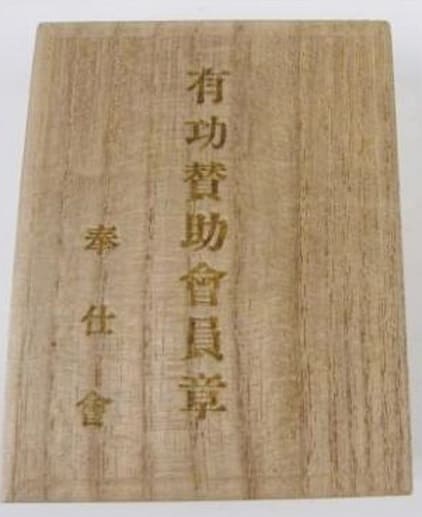 有功賛助會員章
奉仕會